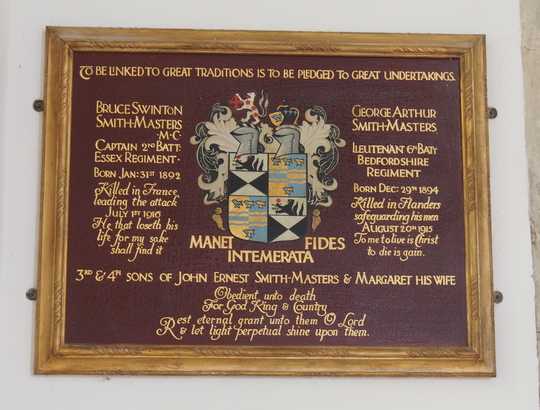 TO BE LINKED TO GREAT TRADITIONS IS TO BE PLEDGED TO GREAT UNDERTAKINGS.
BRUCE SWINTON
SMITH-MASTERS
·M·C·
CAPTAIN 2ND BATT:
ESSEX REGIMENT·
BORN JAN: 31ST 1892
Killed in France
leading the attack
JULY 1ST 1916
He that loseth his
life for my sake
shall find it
GEORGE ARTHUR
SMITH-MASTERS.
LIEUTENANT 6TH BATT
BEDFORDSHIRE
REGIMENT
BORN DEC: 29TH 1894
Killed in Flanders
safeguarding his men
AUGUST 20TH 1915
To me to live is Christ
to die is gain.
MANET FIDES
INTEMERATA
3RD & 4TH SONS OF JOHN ERNEST SMITH-MASTERS & MARGARET HIS WIFE
Obedient unto death
For God King & Country
Rest eternal grant unto them O Lord
& let light perpetual shine upon them.